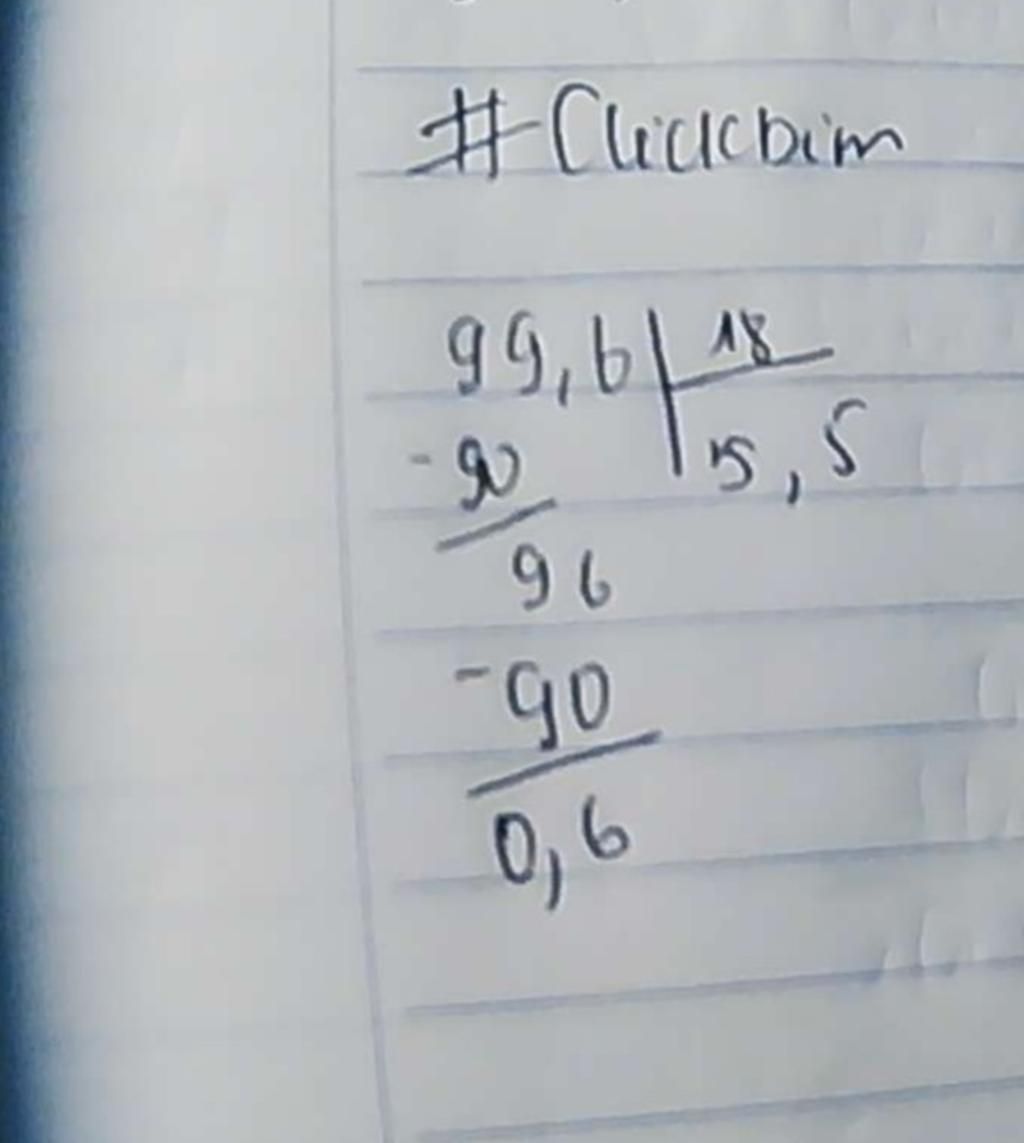 #Clickbim
99,6 18
-90 15,5
96
-90
0,6